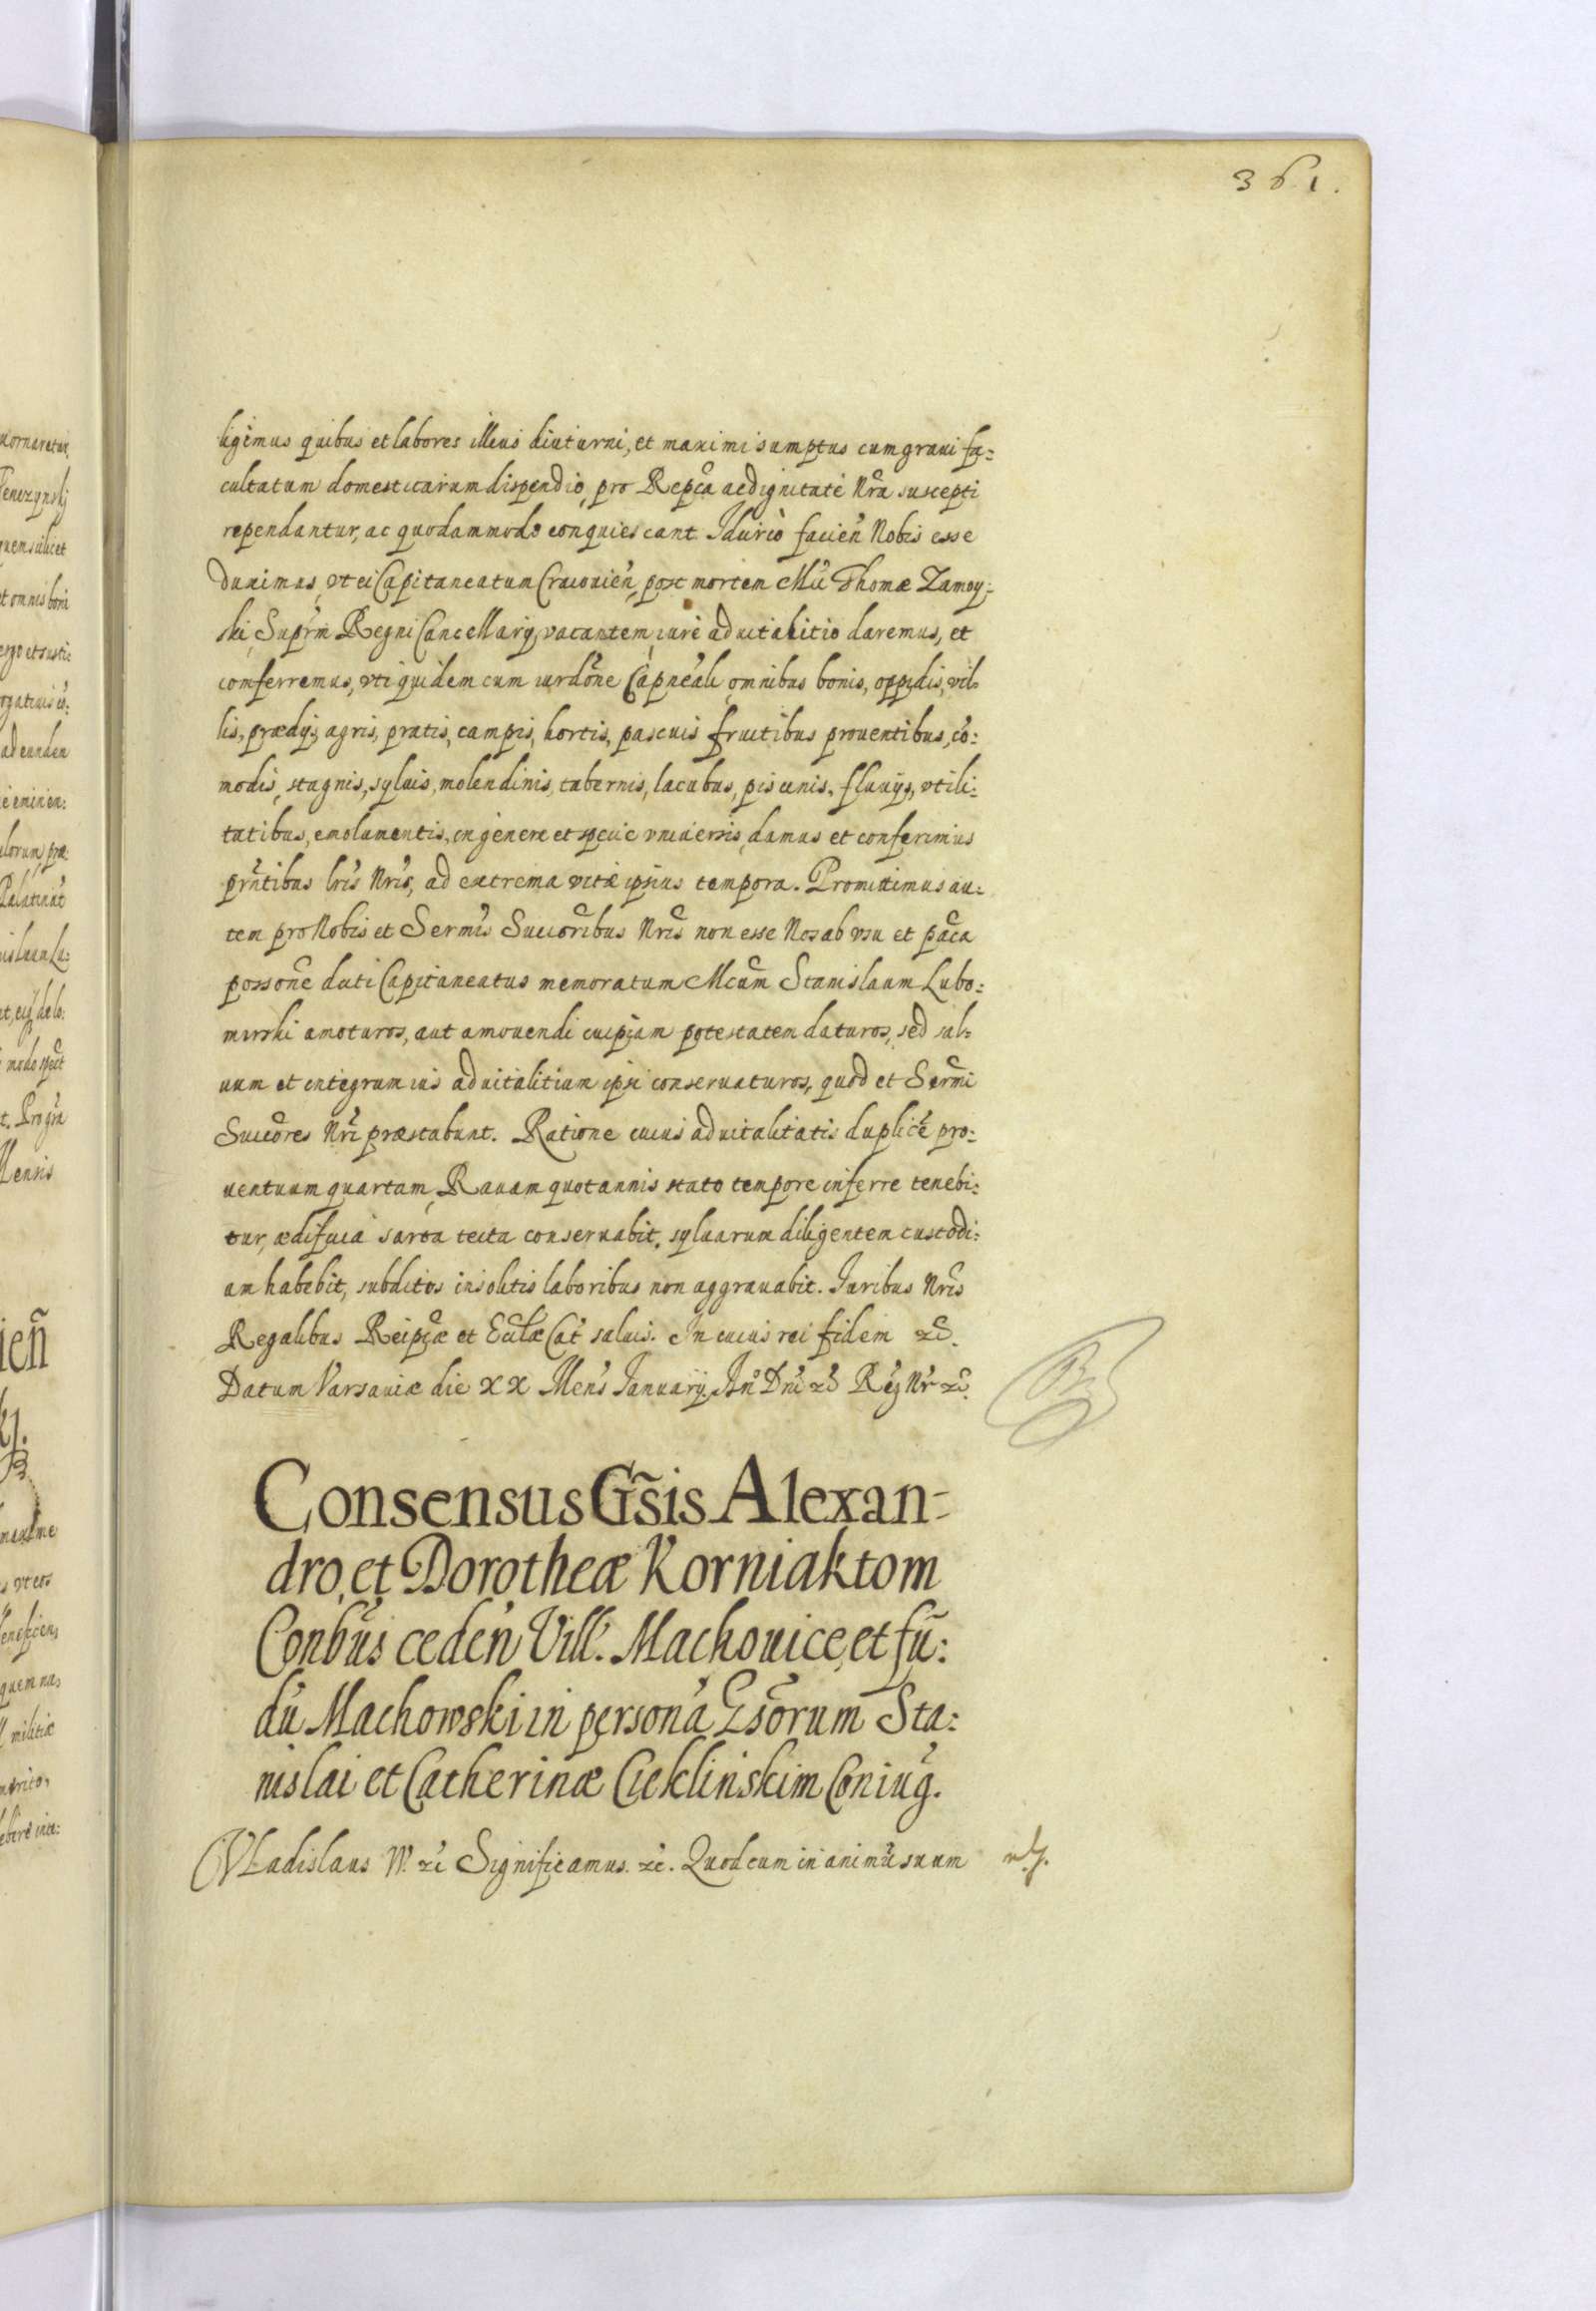 361.
ligimus quibus et labores illius diuturni, et maximi sumptus cum graui fa=
cultatum domesticarum dispendio, pro Repca ac dignitate Nra suscepti
rependantur, ac quodammodo conquiescant. Idcirco facien̄ Nobis esse
duximus, vt ei Capitaneatum Cracouien̄, post mortem Mci Thomæ Zamoy=
ski, Suprm̄ Regni Cancellarij, vacantem, iure aduitalitio daremus, et
conferremus, vti quidem cum iurdōne Capneali, omnibus bonis, oppidis, vil=
lis, prædijs, agris, pratis, campis, hortis, pascuis fructibus prouentibus, cō=
modis, stagnis, syluis, molendinis, tabernis, lacubus, piscinis, fluuijs, vtili=
tatibus, emolumentis, in genere et specie vniuersis damus et conferimus
prn̄tibus lris Nris, ad extrema vitæ ipsius tempora. Promittimus au=
tem pro Nobis et Sermis Succoribus Nris non esse Nos ab vsu et paca
possone dicti Capitaneatus memoratum Mcum Stanislaum Lubo=
mirski amoturos, aut amouendi cuipiam potestatem daturos, sed sal=
uum et integrum ius aduitalitium ipsi conseruaturos, quod et Sermi
Succores Nri præstabunt. Ratione cuius aduitalitatis duplicē pro=
uentuum quartam, Rauam quotannis stato tempore inferre tenebi=
tur, ædificia sarta tecta conseruabit, syluarum diligentem custodi=
am habebit, subditos insolitis laboribus non aggrauabit. Iuribus Nris
Regalibus Reipcæ et Ecclæ Cat saluis. In cuius rei fidem zc̄.
Datum Varsauiæ die XX Mens Ianuarij. An̄o Dn̄i zc̄ Reg Nr zc̄.
Consensus Gs̃is Alexan=
dro, et Dorotheæ Korniaktom
Conb̃us ceden̄ Vill. Machouice, et fũ=
dũ Machowski in persona Gsorum Sta=
nislai et Catherinæ Cieklinskim Coniug.
Vladislaus IV. zc̄ Significamus. zc̄. Quod cum in animũ suum